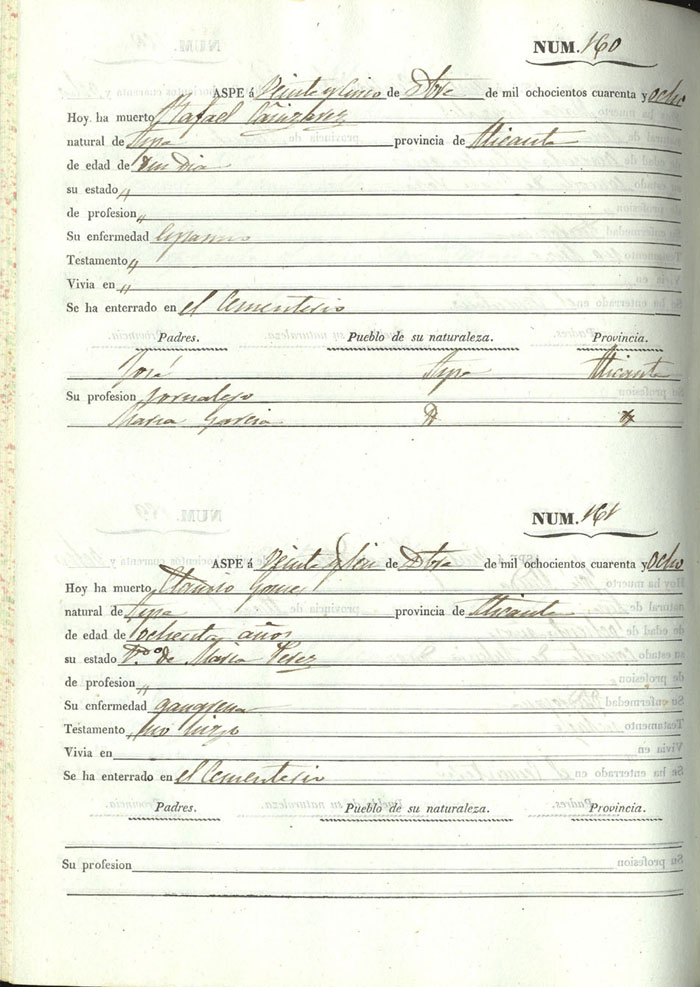 NUM. 160
ASPE á Veinte y cinco de Dbre de mil ochocientos cuarenta y ocho
Hoy ha muerto Rafael
natural de Aspe provincia de Alicante
de edad de un Dia
su estado "
de profesion "
Su enfermedad
Testamento "
Vivia en "
Se ha enterrado en el Cementerio
Padres. Pueblo de su naturaleza. Provincia.
José Aspe Alicante
Su profesion Jornalero
Maria Garcia
NUM. 161
ASPE á Veinte y seis de Dbre de mil ochocientos cuarenta y ocho
Hoy ha muerto
natural de Aspe provincia de Alicante
de edad de ochenta años
su estado Vdo de Maria Perez
de profesion "
Su enfermedad gangrena
Testamento no hizo
Vivia en
Se ha enterrado en el Cementerio
Padres. Pueblo de su naturaleza. Provincia.
Su profesion